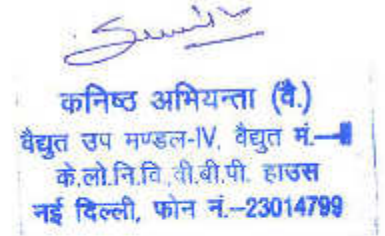 कनिष्ठ अभियन्ता (वै.)
वैद्युत उप मण्डल-IV, वैद्युत मं.—
के.लो.नि.वि.,वी.बी.पी. हाउस
नई दिल्ली, फोन नं.–23014799